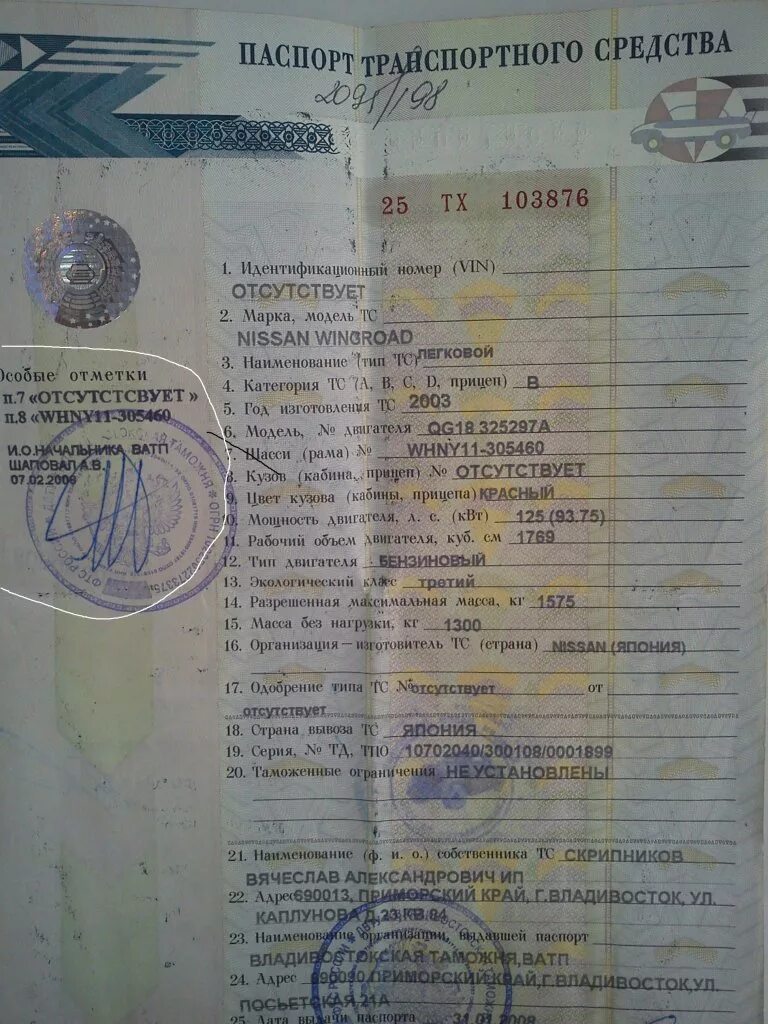 ПАСПОРТ ТРАНСПОРТНОГО СРЕДСТВА
2095/198
25 ТХ 103876
1. Идентификационный номер (VIN)
ОТСУТСТВУЕТ
2. Марка, модель ТС
NISSAN WINGROAD
3. Наименование (тип ТС) ЛЕГКОВОЙ
4. Категория ТС (А, В, С, D, прицеп) В
5. Год изготовления ТС 2003
6. Модель, № двигателя QG18 325297A
7. Шасси (рама) № WHNY11-305460
8. Кузов (кабина, прицеп) № ОТСУТСТВУЕТ
9. Цвет кузова (кабины, прицепа) КРАСНЫЙ
10. Мощность двигателя, л. с. (кВт) 125 (93.75)
11. Рабочий объем двигателя, куб. см 1769
12. Тип двигателя БЕНЗИНОВЫЙ
13. Экологический класс третий
14. Разрешенная максимальная масса, кг 1575
15. Масса без нагрузки, кг 1300
16. Организация – изготовитель ТС (страна) NISSAN (ЯПОНИЯ)
17. Одобрение типа ТС № отсутствует от
отсутствует
18. Страна вывоза ТС ЯПОНИЯ
19. Серия, № ТД, ТПО 10702040/300108/0001899
20. Таможенные ограничения НЕ УСТАНОВЛЕНЫ
21. Наименование (ф. и. о.) собственника ТС СКРИПНИКОВ
ВЯЧЕСЛАВ АЛЕКСАНДРОВИЧ ИП
22. Адрес 690013, ПРИМОРСКИЙ КРАЙ, Г.ВЛАДИВОСТОК, УЛ.
КАПЛУНОВА Д.23 КВ.84
23. Наименование организации, выдавшей паспорт
ВЛАДИВОСТОКСКАЯ ТАМОЖНЯ,ВАТП
24. Адрес 690090,ПРИМОРСКИЙ КРАЙ,Г.ВЛАДИВОСТОК,УЛ.
ПОСЬЕТСКАЯ,21А
25. Дата выдачи паспорта 31.01.2008
Особые отметки
п.7 «ОТСУТСТСВУЕТ»
п.8 «WHNY11-305460
И.О.НАЧАЛЬНИКА ВАТП
ШАПОВАЛ А.В.
07.02.2008